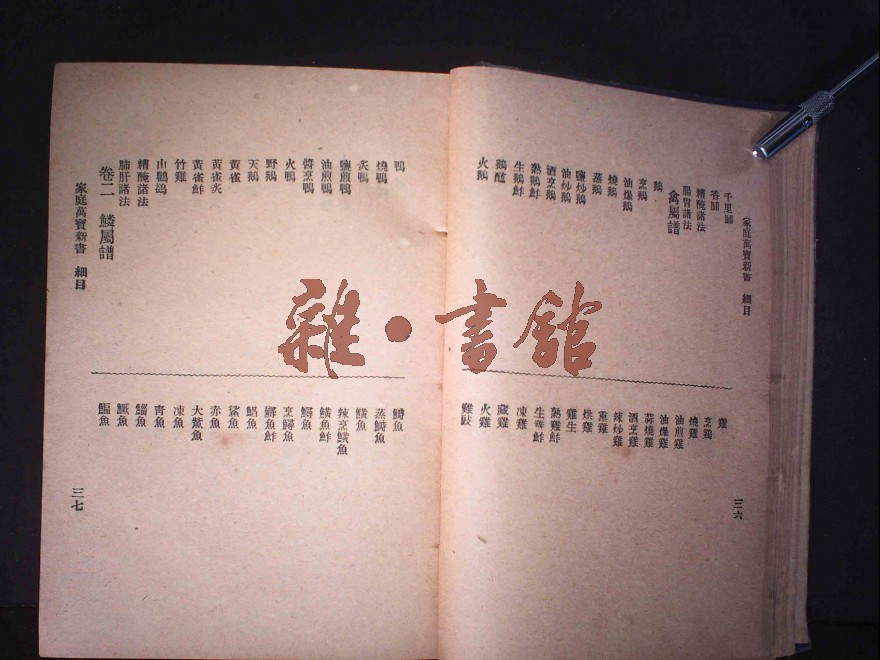 家庭萬寶新書 細目
千里脯
香脯
糟醃諸法
腸胃諸法
禽屬譜
鵝
烹鵝
油爆鵝
燒鵝
蒸鵝
鹽炒鵝
油炒鵝
酒烹鵝
熟鵝鮓
生鵝鮓
鵝醢
火鵝
雞
烹雞
燒雞
油煎雞
油爆雞
蒜燒雞
酒烹雞
辣炒雞
熏雞
烘雞
雞生
熟雞鮓
生雞鮓
凍雞
藏雞
火雞
雞豉
三六
鴨
燒鴨
炙鴨
鹽煎鴨
油煎鴨
醬烹鴨
火鴨
野鵝
天鵝
黃雀
黃雀炙
黃雀鮓
竹雞
山鷓鴣
糟醃諸法
肺肝諸法
卷二 鱗屬譜
家庭萬寶新書 細目
鰣魚
蒸鰣魚
鱑魚
辣烹鱑魚
鱑魚鮓
鱘魚
烹鱘魚
鱘魚鮓
鯧魚
鯊魚
大鱟魚
赤魚
凍魚
青魚
鯔魚
鱖魚
鯿魚
三七
雜·書館